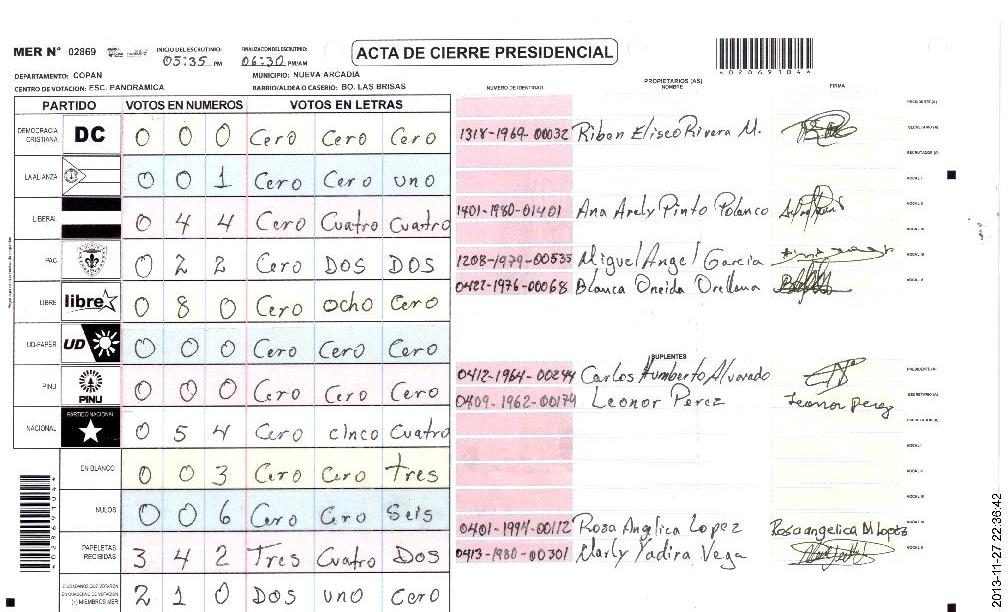 MER N° 02869
INICIO DEL ESCRUTINIO: 05:35 PM
FINALIZACION DEL ESCRUTINIO: 06:30 PM/AM
ACTA DE CIERRE PRESIDENCIAL
4028691044
DEPARTAMENTO: COPAN
MUNICIPIO: NUEVA ARCADIA
CENTRO DE VOTACION: ESC. PANORAMICA
BARRIO/ALDEA O CASERIO: BO. LAS BRISAS
PARTIDO VOTOS EN NUMEROS VOTOS EN LETRAS
DEMOCRACIA CRISTIANA DC 0 0 0 Cero Cero Cero
LA ALIANZA 0 0 1 Cero Cero uno
LIBERAL 0 4 4 Cero Cuatro Cuatro
PAC 0 2 2 Cero DOS DOS
LIBRE libre 0 8 0 Cero ocho Cero
UD-FAPER UD 0 0 0 Cero Cero Cero
PINU PINU 0 0 0 Cero Cero Cero
NACIONAL PARTIDO NACIONAL 0 5 4 Cero cinco Cuatro
EN BLANCO 0 0 3 Cero Cero Tres
NULOS 0 0 6 Cero Cero Seis
PAPELETAS RECIBIDAS 3 4 2 Tres Cuatro Dos
CIUDADANOS QUE VOTARON EN CUADERNO DE VOTACION (+) MIEMBROS MER 2 1 0 DOS uno Cero
NUMERO DE IDENTIDAD PROPIETARIOS (AS) NOMBRE FIRMA
PRESIDENTE (A)
1318-1969-00032 Riben Eliseo Rivera M. SECRETARIO (A)
ESCRUTADOR (A)
VOCAL I
1401-1980-01401 Ana Arely Pinto Polanco VOCAL II
VOCAL III
1208-1979-00535 Miguel Angel Garcia VOCAL IV
0421-1976-00068 Blanca Oneida Orellana VOCAL V
SUPLENTES
0412-1964-00244 Carlos Humberto Alvarado PRESIDENTE (A)
0409-1962-00179 Leonor Perez Leonor perez SECRETARIO (A)
ESCRUTADOR (A)
VOCAL I
VOCAL II
VOCAL III
0401-1994-00112 Rosa Angelica Lopez Rosa angelica M Lopez VOCAL IV
0413-1980-00301 Marly Yadira Vega VOCAL V
4028691044
2013-11-27 22:36:42